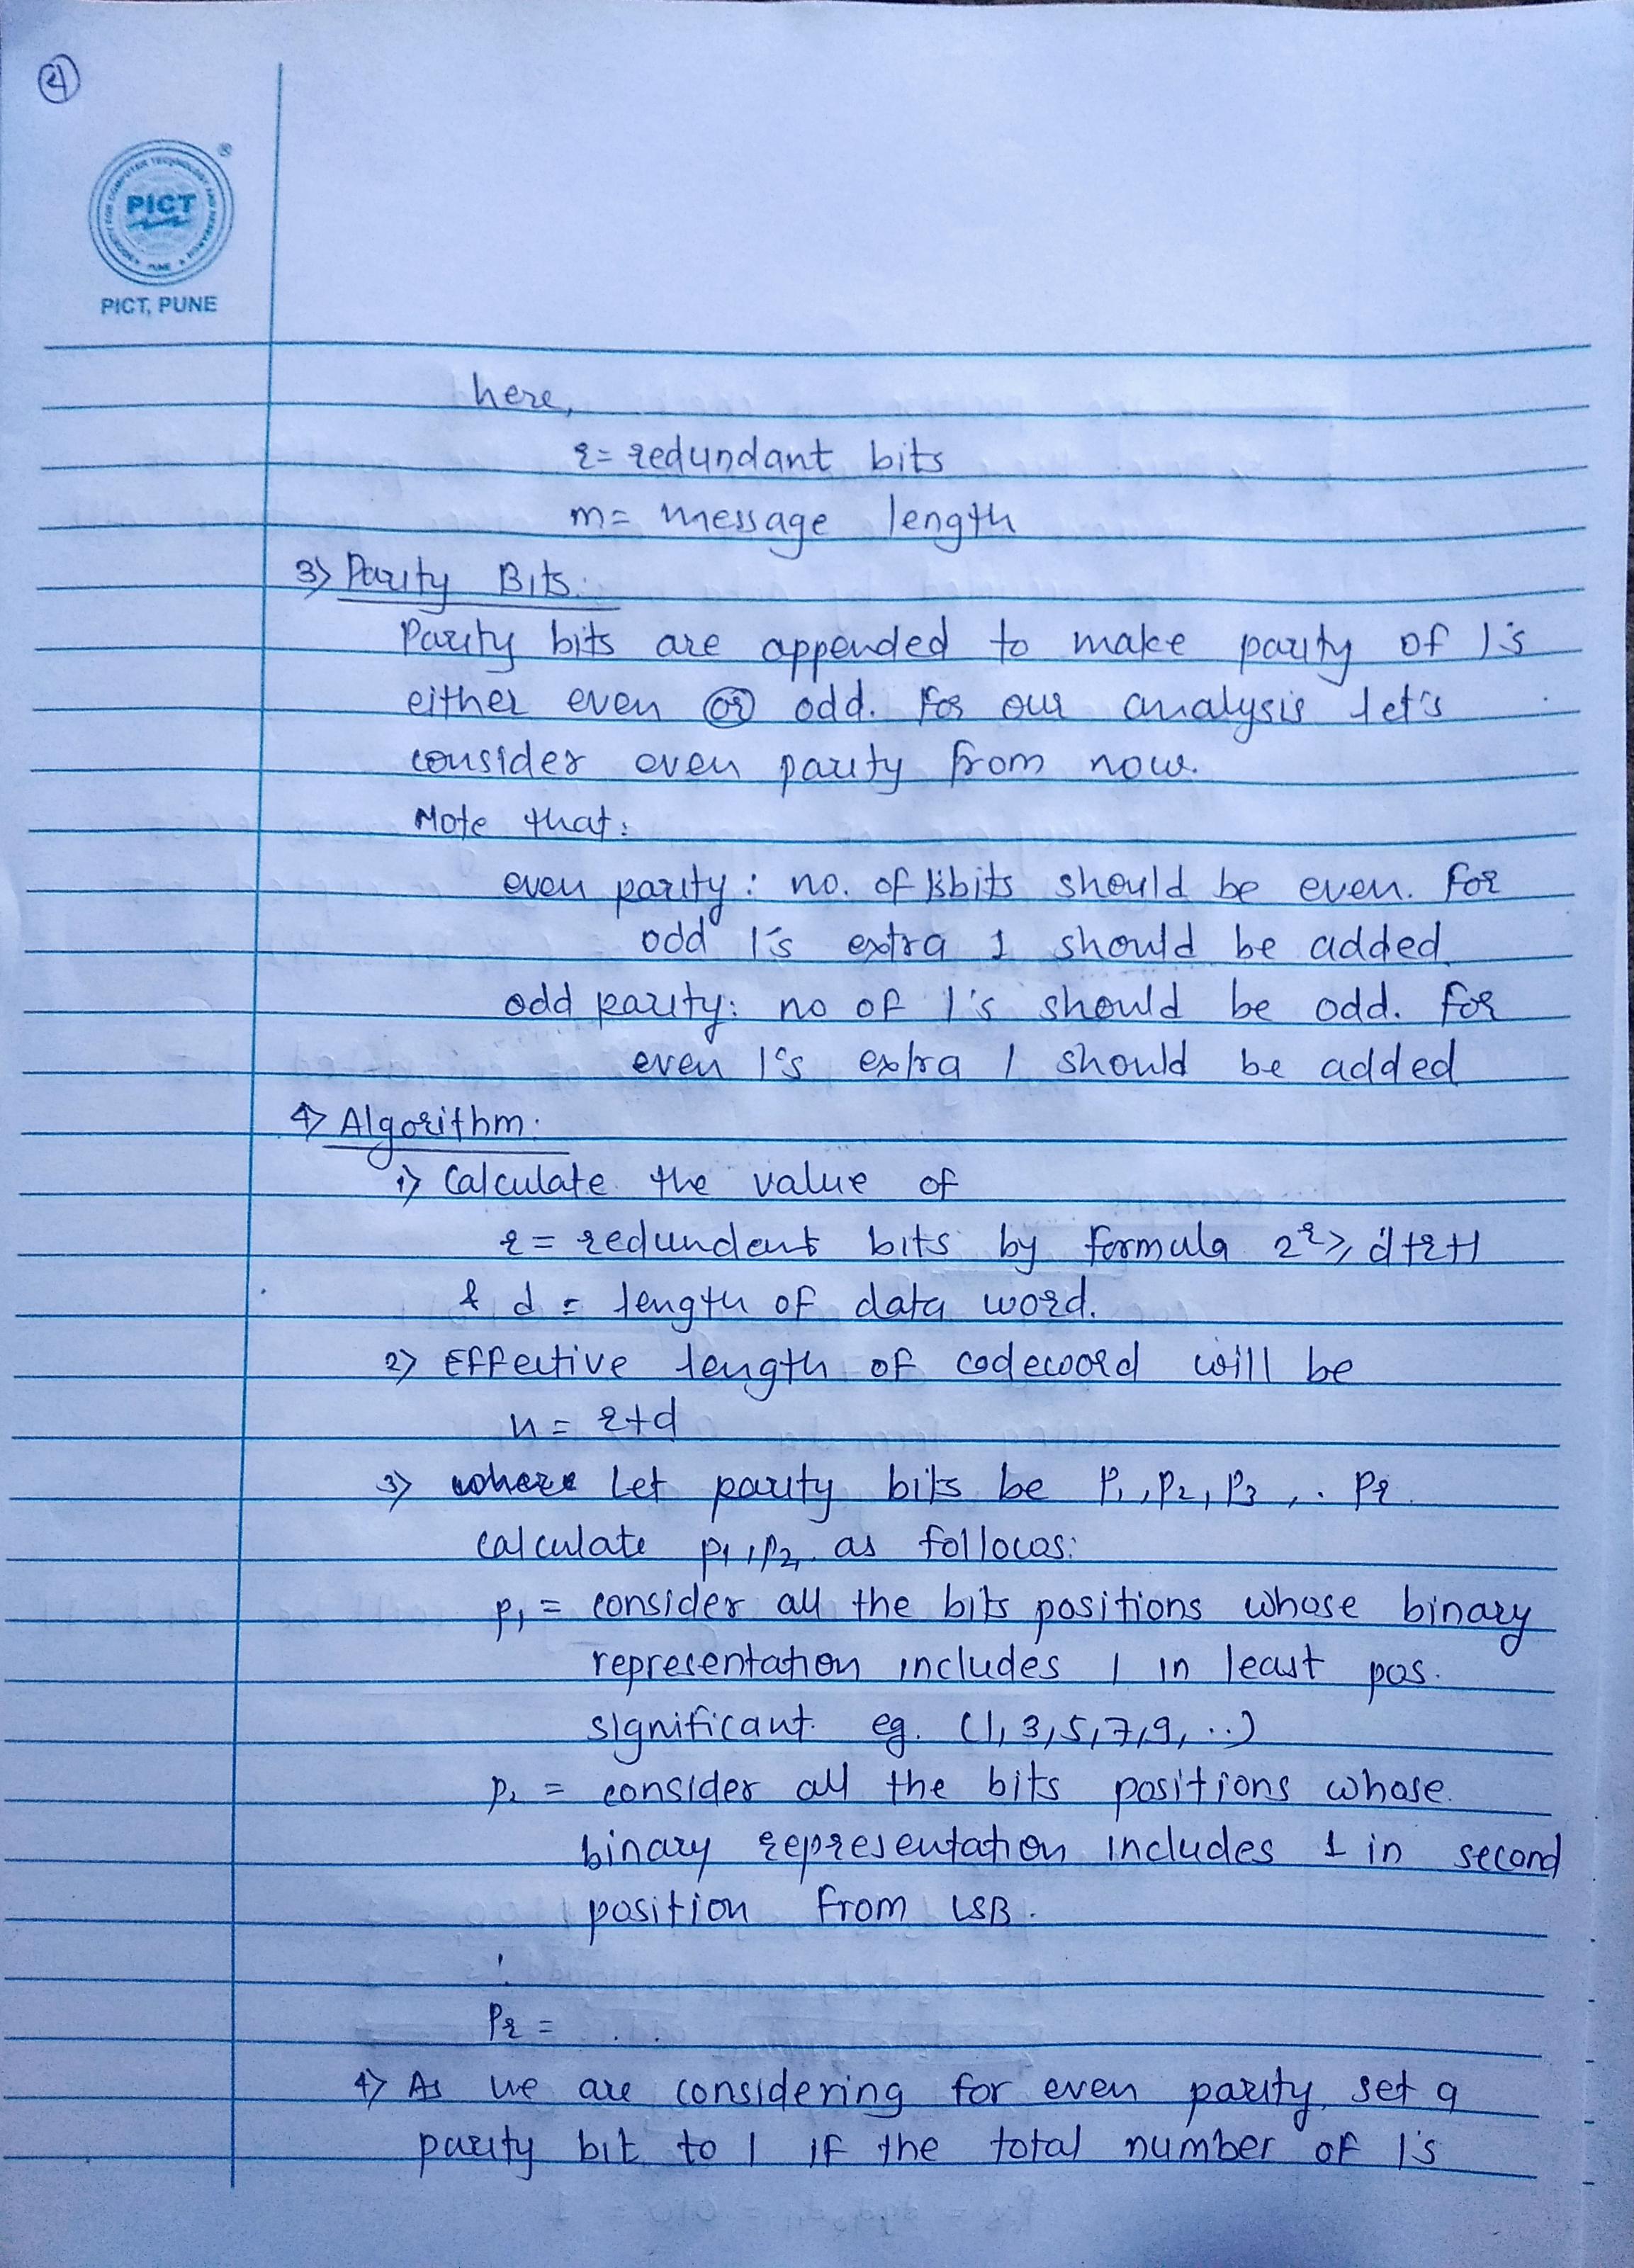 4
®
SOCIETY FOR COMPUTER TECHNOLOGY AND RESEARCH
PICT
PUNE
PICT, PUNE
here,
r = redundant bits
m = message length
3) Parity Bits:
Parity bits are appended to make parity of 1's
either even or odd. For our analysis let's
consider even parity from now.
Note that:
even parity: no. of 1's bits should be even. For
odd 1's extra 1 should be added
odd parity: no of 1's should be odd. For
even 1's extra 1 should be added
4) Algorithm:
1) Calculate the value of
r = redundant bits by formula 2^r ≥ d+r+1
& d = length of data word.
2) Effective length of codeword will be
n = r+d
3) where Let parity bits be P1, P2, P3, .. Pr.
calculate p1, p2, as follows:
p1 = consider all the bits positions whose binary
representation includes 1 in least pos.
significant. eg. (1,3,5,7,9,..)
p2 = consider all the bits positions whose
binary representation includes 1 in second
position from LSB.
:
Pr = . . .
4) As we are considering for even parity, set a
parity bit to 1 if the total number of 1's